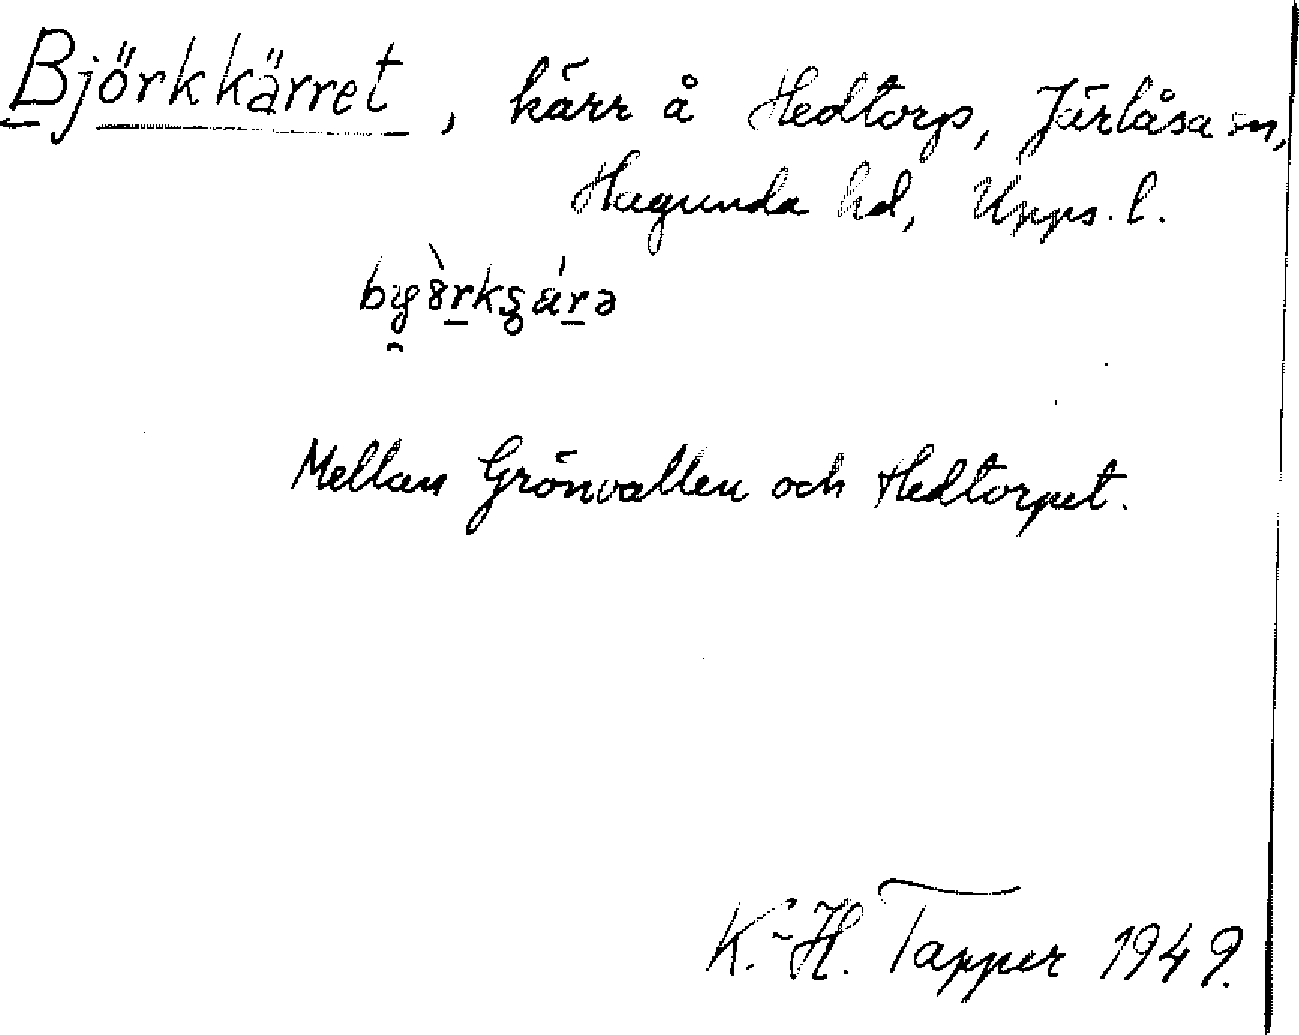 Björkkärret, kärr å Hedtorp, Järlåsa sn,
Hagunda hd, Upps. l.
Mellan Grönvallen och Hedtorpet.
K.-H. Tapper 1949.